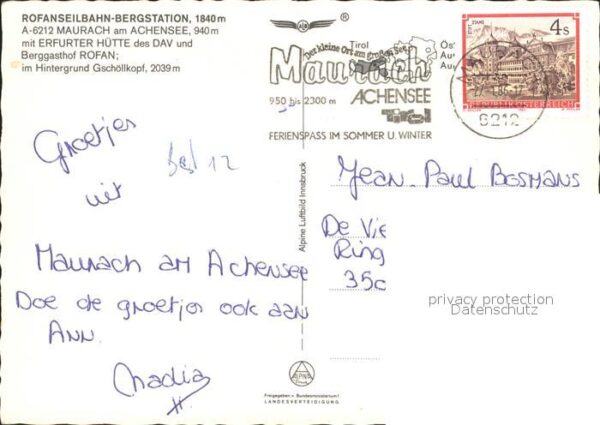 ROFANSEILBAHN-BERGSTATION, 1840 m
A-6212 MAURACH am ACHENSEE, 940 m
mit ERFURTER HÜTTE des DAV und
Berggasthof ROFAN;
im Hintergrund Gschöllkopf, 2039 m
Tirol
Der kleine Ort am großen See
Maurach
950 bis 2300 m
ACHENSEE
Tirol
FERIENSPASS IM SOMMER U. WINTER
STIFT STAMS
4 S
REPUBLIK ÖSTERREICH
6212
Groetjes
uit
Maurach am Achensee
Doe de groetjes ook aan
Ann.
Nadia
Alpine Luftbild Innsbruck
Jean-Paul Bosmans
De Vie
Ring
35c
privacy protection
Datenschutz
ALPINE
Freigegeben v. Bundesministerium f.
LANDESVERTEIDIGUNG